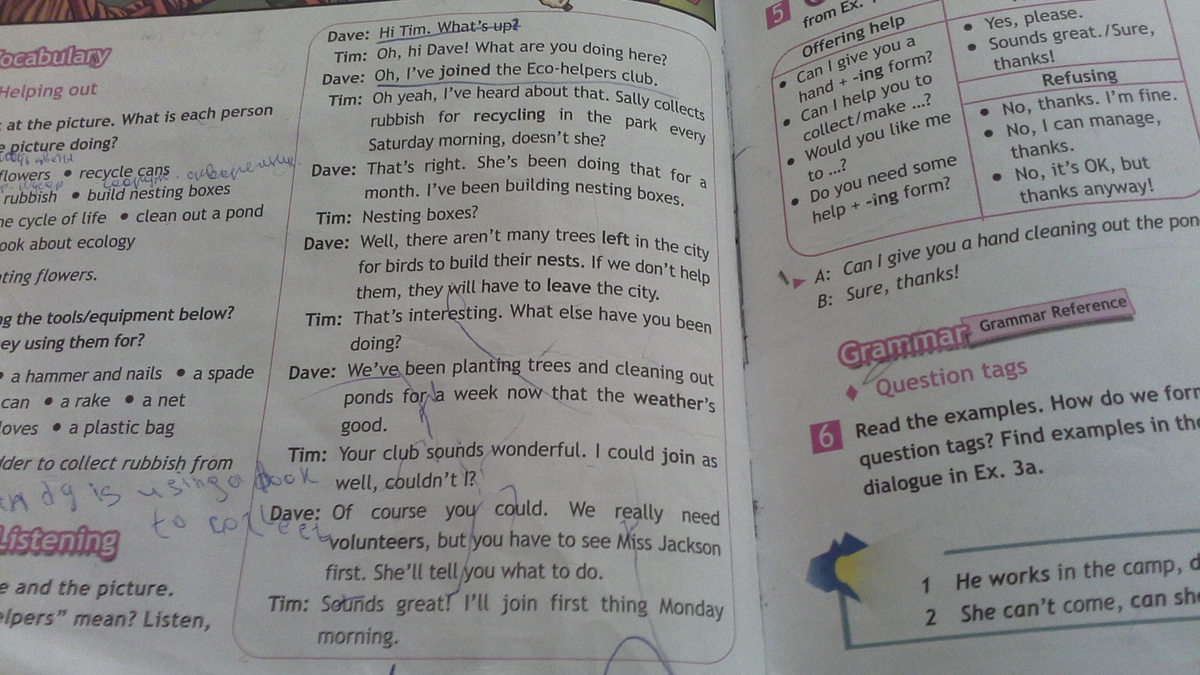 Vocabulary
Helping out
at the picture. What is each person
picture doing?
flowers • recycle cans
rubbish • build nesting boxes
he cycle of life • clean out a pond
ook about ecology
ting flowers.
ng the tools/equipment below?
ey using them for?
• a hammer and nails • a spade
can • a rake • a net
loves • a plastic bag
dder to collect rubbish from
is using a book
to collect
Listening
e and the picture.
elpers" mean? Listen,
Dave: Hi Tim. What's up?
Tim: Oh, hi Dave! What are you doing here?
Dave: Oh, I've joined the Eco-helpers club.
Tim: Oh yeah, I've heard about that. Sally collects
rubbish for recycling in the park every
Saturday morning, doesn't she?
Dave: That's right. She's been doing that for a
month. I've been building nesting boxes.
Tim: Nesting boxes?
Dave: Well, there aren't many trees left in the city
for birds to build their nests. If we don't help
them, they will have to leave the city.
Tim: That's interesting. What else have you been
doing?
Dave: We've been planting trees and cleaning out
ponds for a week now that the weather's
good.
Tim: Your club sounds wonderful. I could join as
well, couldn't I?
Dave: Of course you could. We really need
volunteers, but you have to see Miss Jackson
first. She'll tell you what to do.
Tim: Sounds great! I'll join first thing Monday
morning.
5
from Ex.
Offering help
• Can I give you a
hand + -ing form?
• Can I help you to
collect/make ...?
• Would you like me
to ...?
• Do you need some
help + -ing form?
• Yes, please.
• Sounds great./Sure,
thanks!
Refusing
• No, thanks. I'm fine.
• No, I can manage,
thanks.
• No, it's OK, but
thanks anyway!
A: Can I give you a hand cleaning out the pon
B: Sure, thanks!
Grammar Grammar Reference
Question tags
6 Read the examples. How do we form
question tags? Find examples in the
dialogue in Ex. 3a.
1 He works in the camp, d
2 She can't come, can she